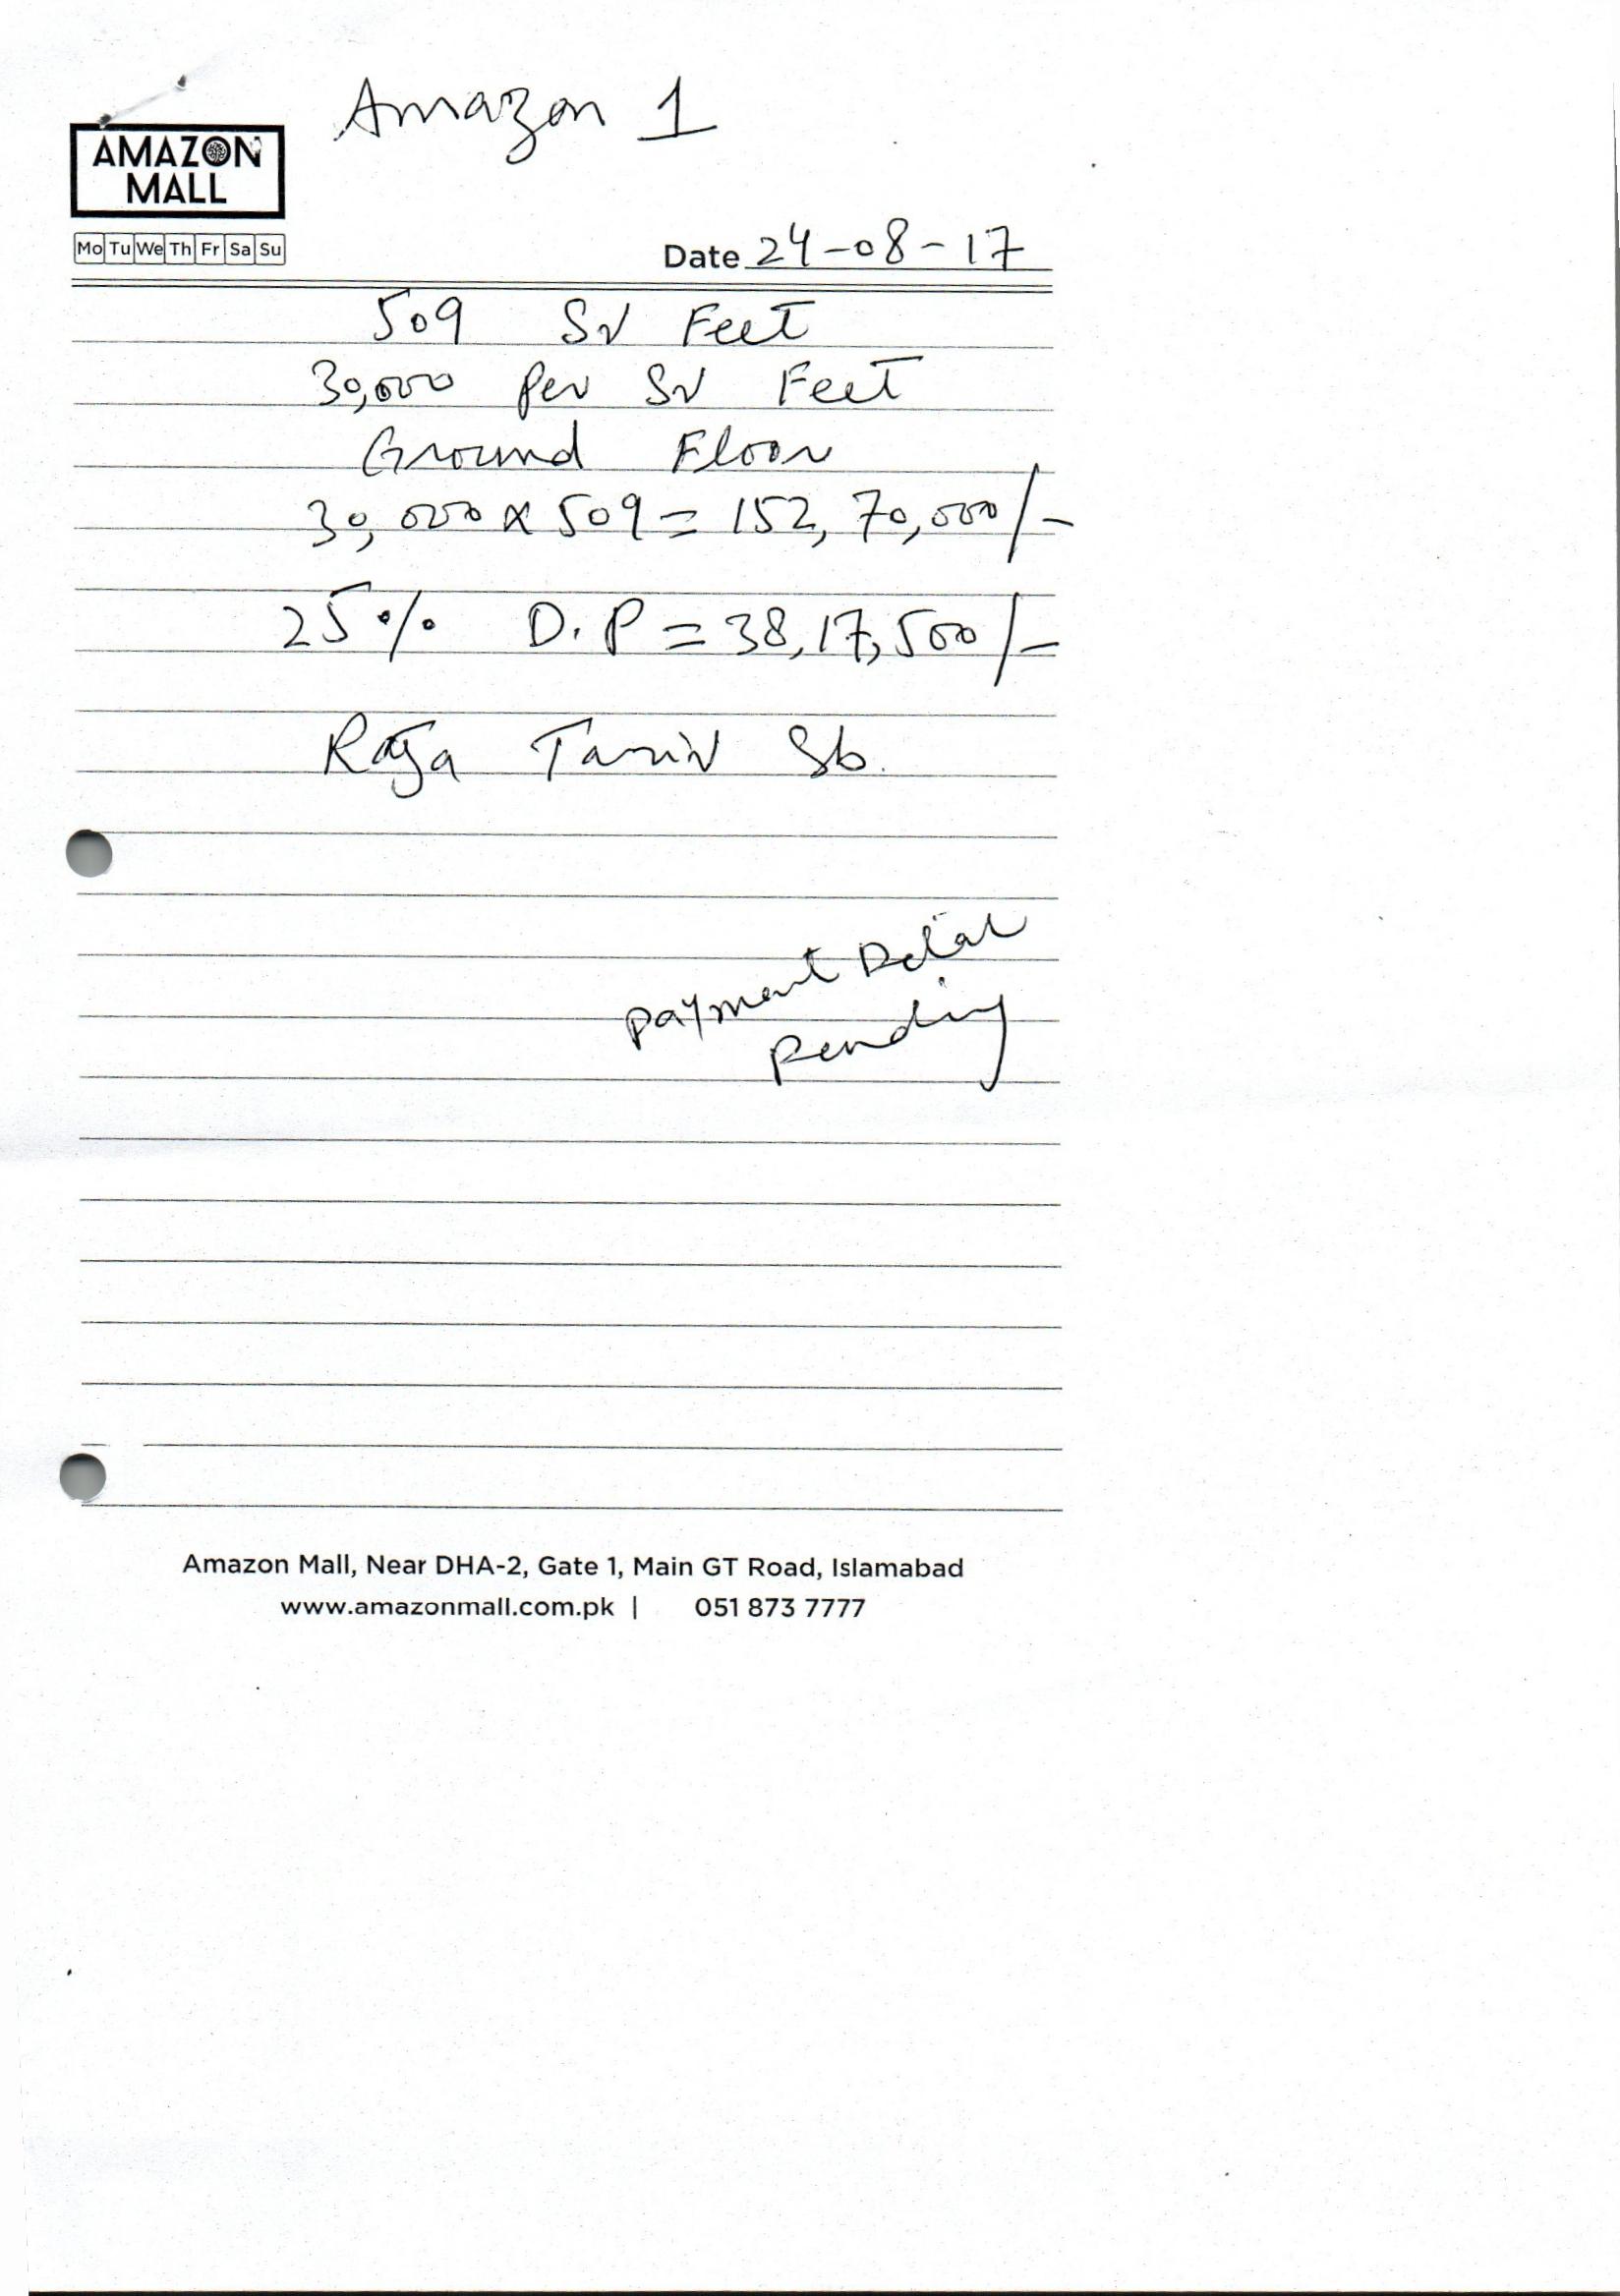 Amazon 1
AMAZON
MALL
Mo Tu We Th Fr Sa Su
Date 24-08-17
509 Sq Feet
30,000 Per Sq Feet
Ground Floor
30,000 x 509 = 152,70,000/-
25% D.P = 38,17,500/-
Raja Tariq Sb.
Payment Detail
Pending
Amazon Mall, Near DHA-2, Gate 1, Main GT Road, Islamabad
www.amazonmall.com.pk | 051 873 7777